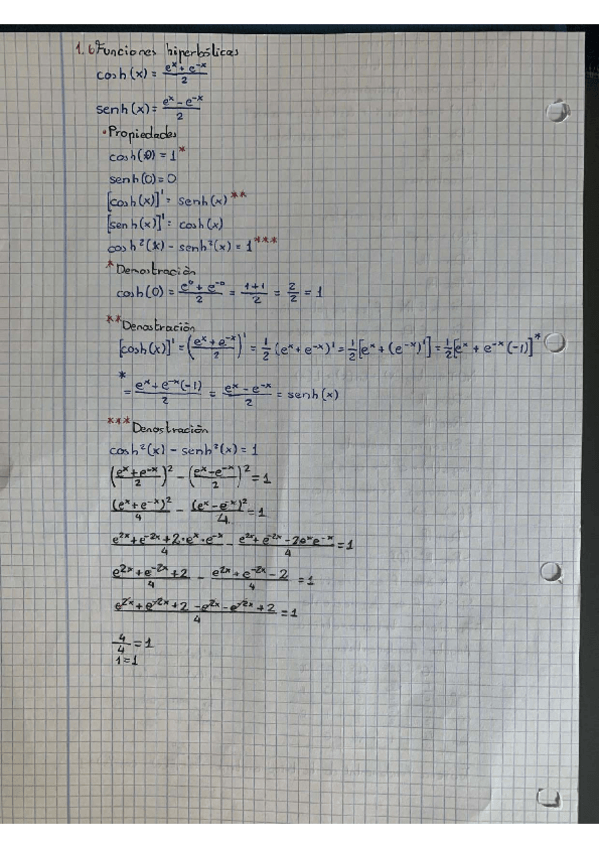 1.6 Funciones hiperbólicas
cosh(x) = (e^x + e^-x)/2
senh(x) = (e^x - e^-x)/2
• Propiedades
cosh(0) = 1 *
senh(0) = 0
[cosh(x)]' = senh(x) **
[senh(x)]' = cosh(x)
cosh²(x) - senh²(x) = 1 ***
* Demostración
cosh(0) = (e^0 + e^-0)/2 = (1+1)/2 = 2/2 = 1
** Demostración
[cosh(x)]' = ((e^x + e^-x)/2)' = 1/2 (e^x + e^-x)' = 1/2 [e^x + (e^-x)'] = 1/2 [e^x + e^-x (-1)] *
* = (e^x + e^-x (-1))/2 = (e^x - e^-x)/2 = senh(x)
*** Demostración
cosh²(x) - senh²(x) = 1
((e^x + e^-x)/2)² - ((e^x - e^-x)/2)² = 1
(e^x + e^-x)²/4 - (e^x - e^-x)²/4 = 1
(e^2x + e^-2x + 2·e^x·e^-x)/4 - (e^2x + e^-2x - 2e^x e^-x)/4 = 1
(e^2x + e^-2x + 2)/4 - (e^2x + e^-2x - 2)/4 = 1
(e^2x + e^-2x + 2 - e^2x - e^-2x + 2)/4 = 1
4/4 = 1
1 = 1